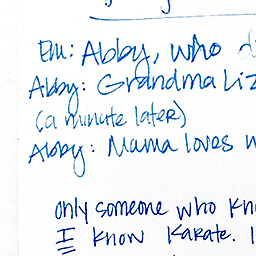 Em: Abby, who
Abby: Grandma Liz
(a minute later)
Abby: Mama loves
only someone who kn
I know karate. I